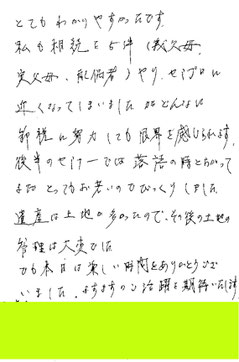 とてもわかりやすかったです。
私も相続を5件(義父母、
実父母、配偶者)やり、セミプロに
近くなってしまいましたがどんなに
節税に努力しても限界を感じられます。
後半のセミナーでは落語の時とちがって
またとってもお若いのでびっくりしました
遺産は土地が多かったので、その後の土地の
管理は大変でした
でも本日は楽しい時間をありがとうござ
いました。ますますのご活躍を期待いたします